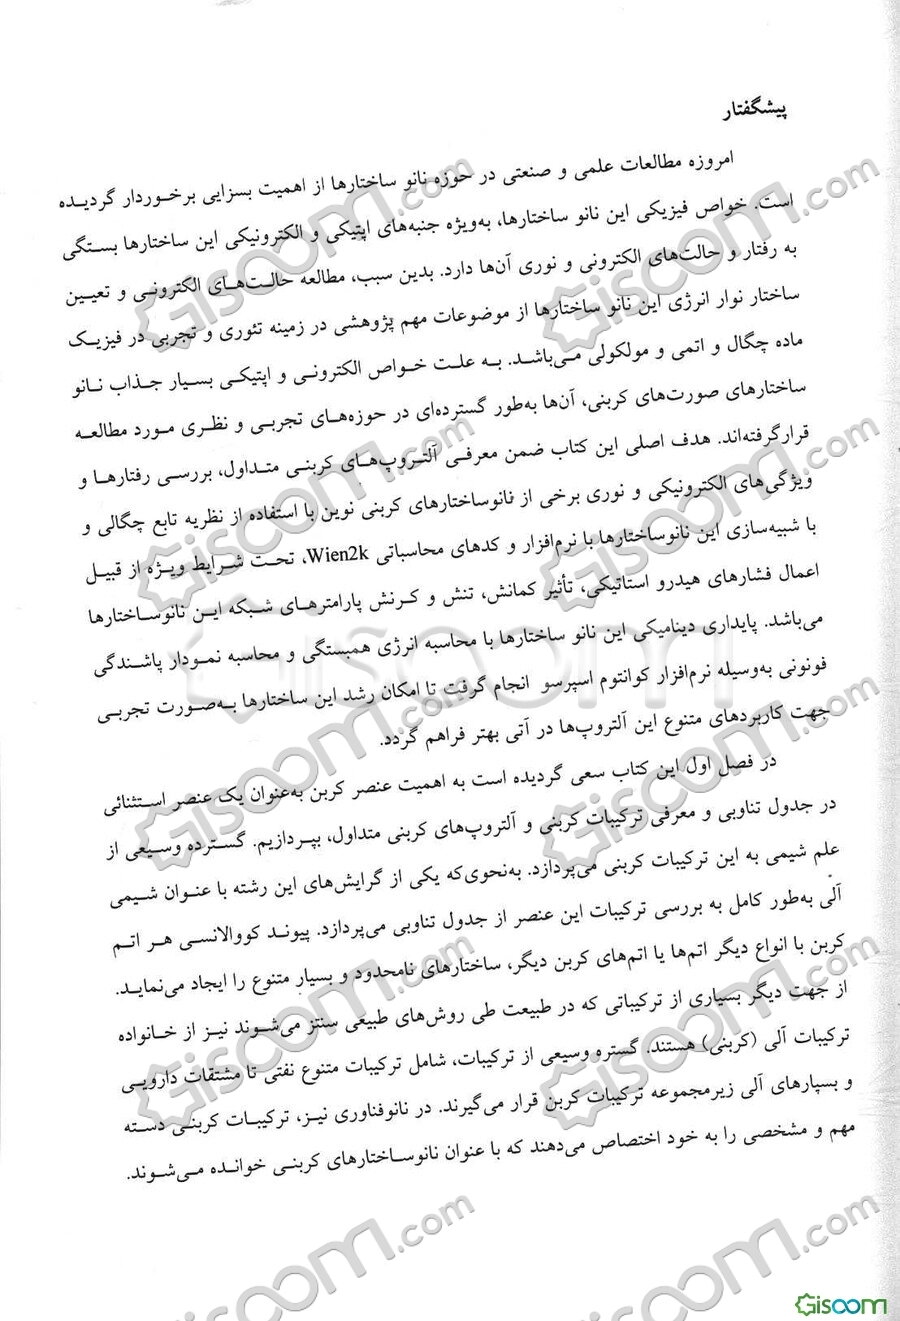 پیشگفتار
امروزه مطالعات علمی و صنعتی در حوزه نانو ساختارها از اهمیت بسزایی برخوردار گردیده
است. خواص فیزیکی این نانو ساختارها، به‌ویژه جنبه‌های اپتیکی و الکترونیکی این ساختارها بستگی
به رفتار و حالت‌های الکترونی و نوری آن‌ها دارد. بدین سبب، مطالعه حالت‌های الکترونی و تعیین
ساختار نوار انرژی این نانو ساختارها از موضوعات مهم پژوهشی در زمینه تئوری و تجربی در فیزیک
ماده چگال و اتمی و مولکولی می‌باشد. به علت خواص الکترونی و اپتیکی بسیار جذاب نانو
ساختارهای صورت‌های کربنی، آن‌ها به‌طور گسترده‌ای در حوزه‌های تجربی و نظری مورد مطالعه
قرارگرفته‌اند. هدف اصلی این کتاب ضمن معرفی آلتروپ‌های کربنی متداول، بررسی رفتارها و
ویژگی‌های الکترونیکی و نوری برخی از نانوساختارهای کربنی نوین با استفاده از نظریه تابع چگالی و
با شبیه‌سازی این نانوساختارها با نرم‌افزار و کدهای محاسباتی Wien2k، تحت شرایط ویژه از قبیل
اعمال فشارهای هیدرو استاتیکی، تأثیر کمانش، تنش و کرنش پارامترهای شبکه این نانوساختارها
می‌باشد. پایداری دینامیکی این نانو ساختارها با محاسبه انرژی همبستگی و محاسبه نمودار پاشندگی
فونونی به‌وسیله نرم‌افزار کوانتوم اسپرسو انجام گرفت تا امکان رشد این ساختارها به‌صورت تجربی
جهت کاربردهای متنوع این آلتروپ‌ها در آتی بهتر فراهم گردد.
در فصل اول این کتاب سعی گردیده است به اهمیت عنصر کربن به‌عنوان یک عنصر استثنائی
در جدول تناوبی و معرفی ترکیبات کربنی و آلتروپ‌های کربنی متداول، بپردازیم. گسترده وسیعی از
علم شیمی به این ترکیبات کربنی می‌پردازد. به‌نحوی‌که یکی از گرایش‌های این رشته با عنوان شیمی
آلی به‌طور کامل به بررسی ترکیبات این عنصر از جدول تناوبی می‌پردازد. پیوند کووالانسی هر اتم
کربن با انواع دیگر اتم‌ها یا اتم‌های کربن دیگر، ساختارهای نامحدود و بسیار متنوع را ایجاد می‌نماید.
از جهت دیگر بسیاری از ترکیباتی که در طبیعت طی روش‌های طبیعی سنتز می‌شوند نیز از خانواده
ترکیبات آلی (کربنی) هستند. گستره وسیعی از ترکیبات، شامل ترکیبات متنوع نفتی تا مشتقات دارویی
و بسپارهای آلی زیرمجموعه ترکیبات کربن قرار می‌گیرند. در نانوفناوری نیز، ترکیبات کربنی دسته
مهم و مشخصی را به خود اختصاص می‌دهند که با عنوان نانوساختارهای کربنی خوانده می‌شوند.
Gisoom